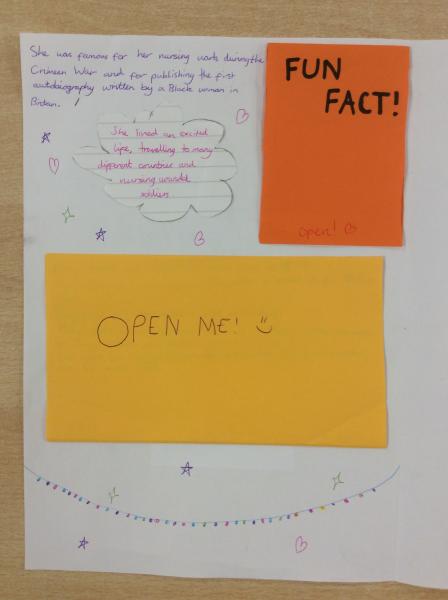 She was famous for her nursing works during the
Crimean War and for publishing the first
autobiography written by a Black woman in
Britain.
She lived an excited
life, travelling to many
different countries and
nursing wounded
soldiers
FUN
FACT!
Open!
OPEN ME!